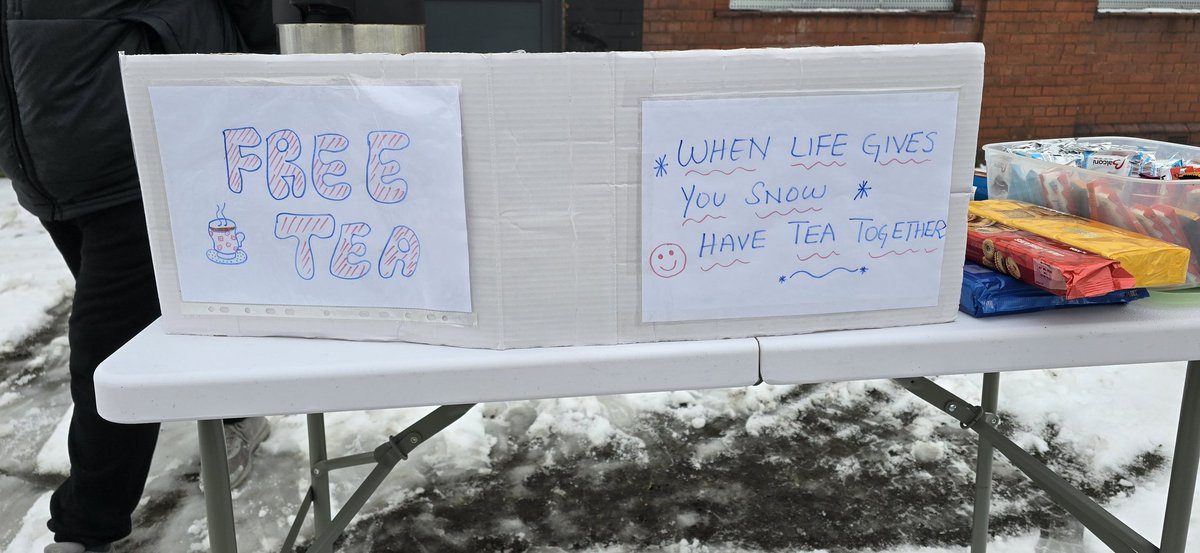 FREE
TEA
WHEN LIFE GIVES
YOU SNOW
HAVE TEA TOGETHER
Balconi